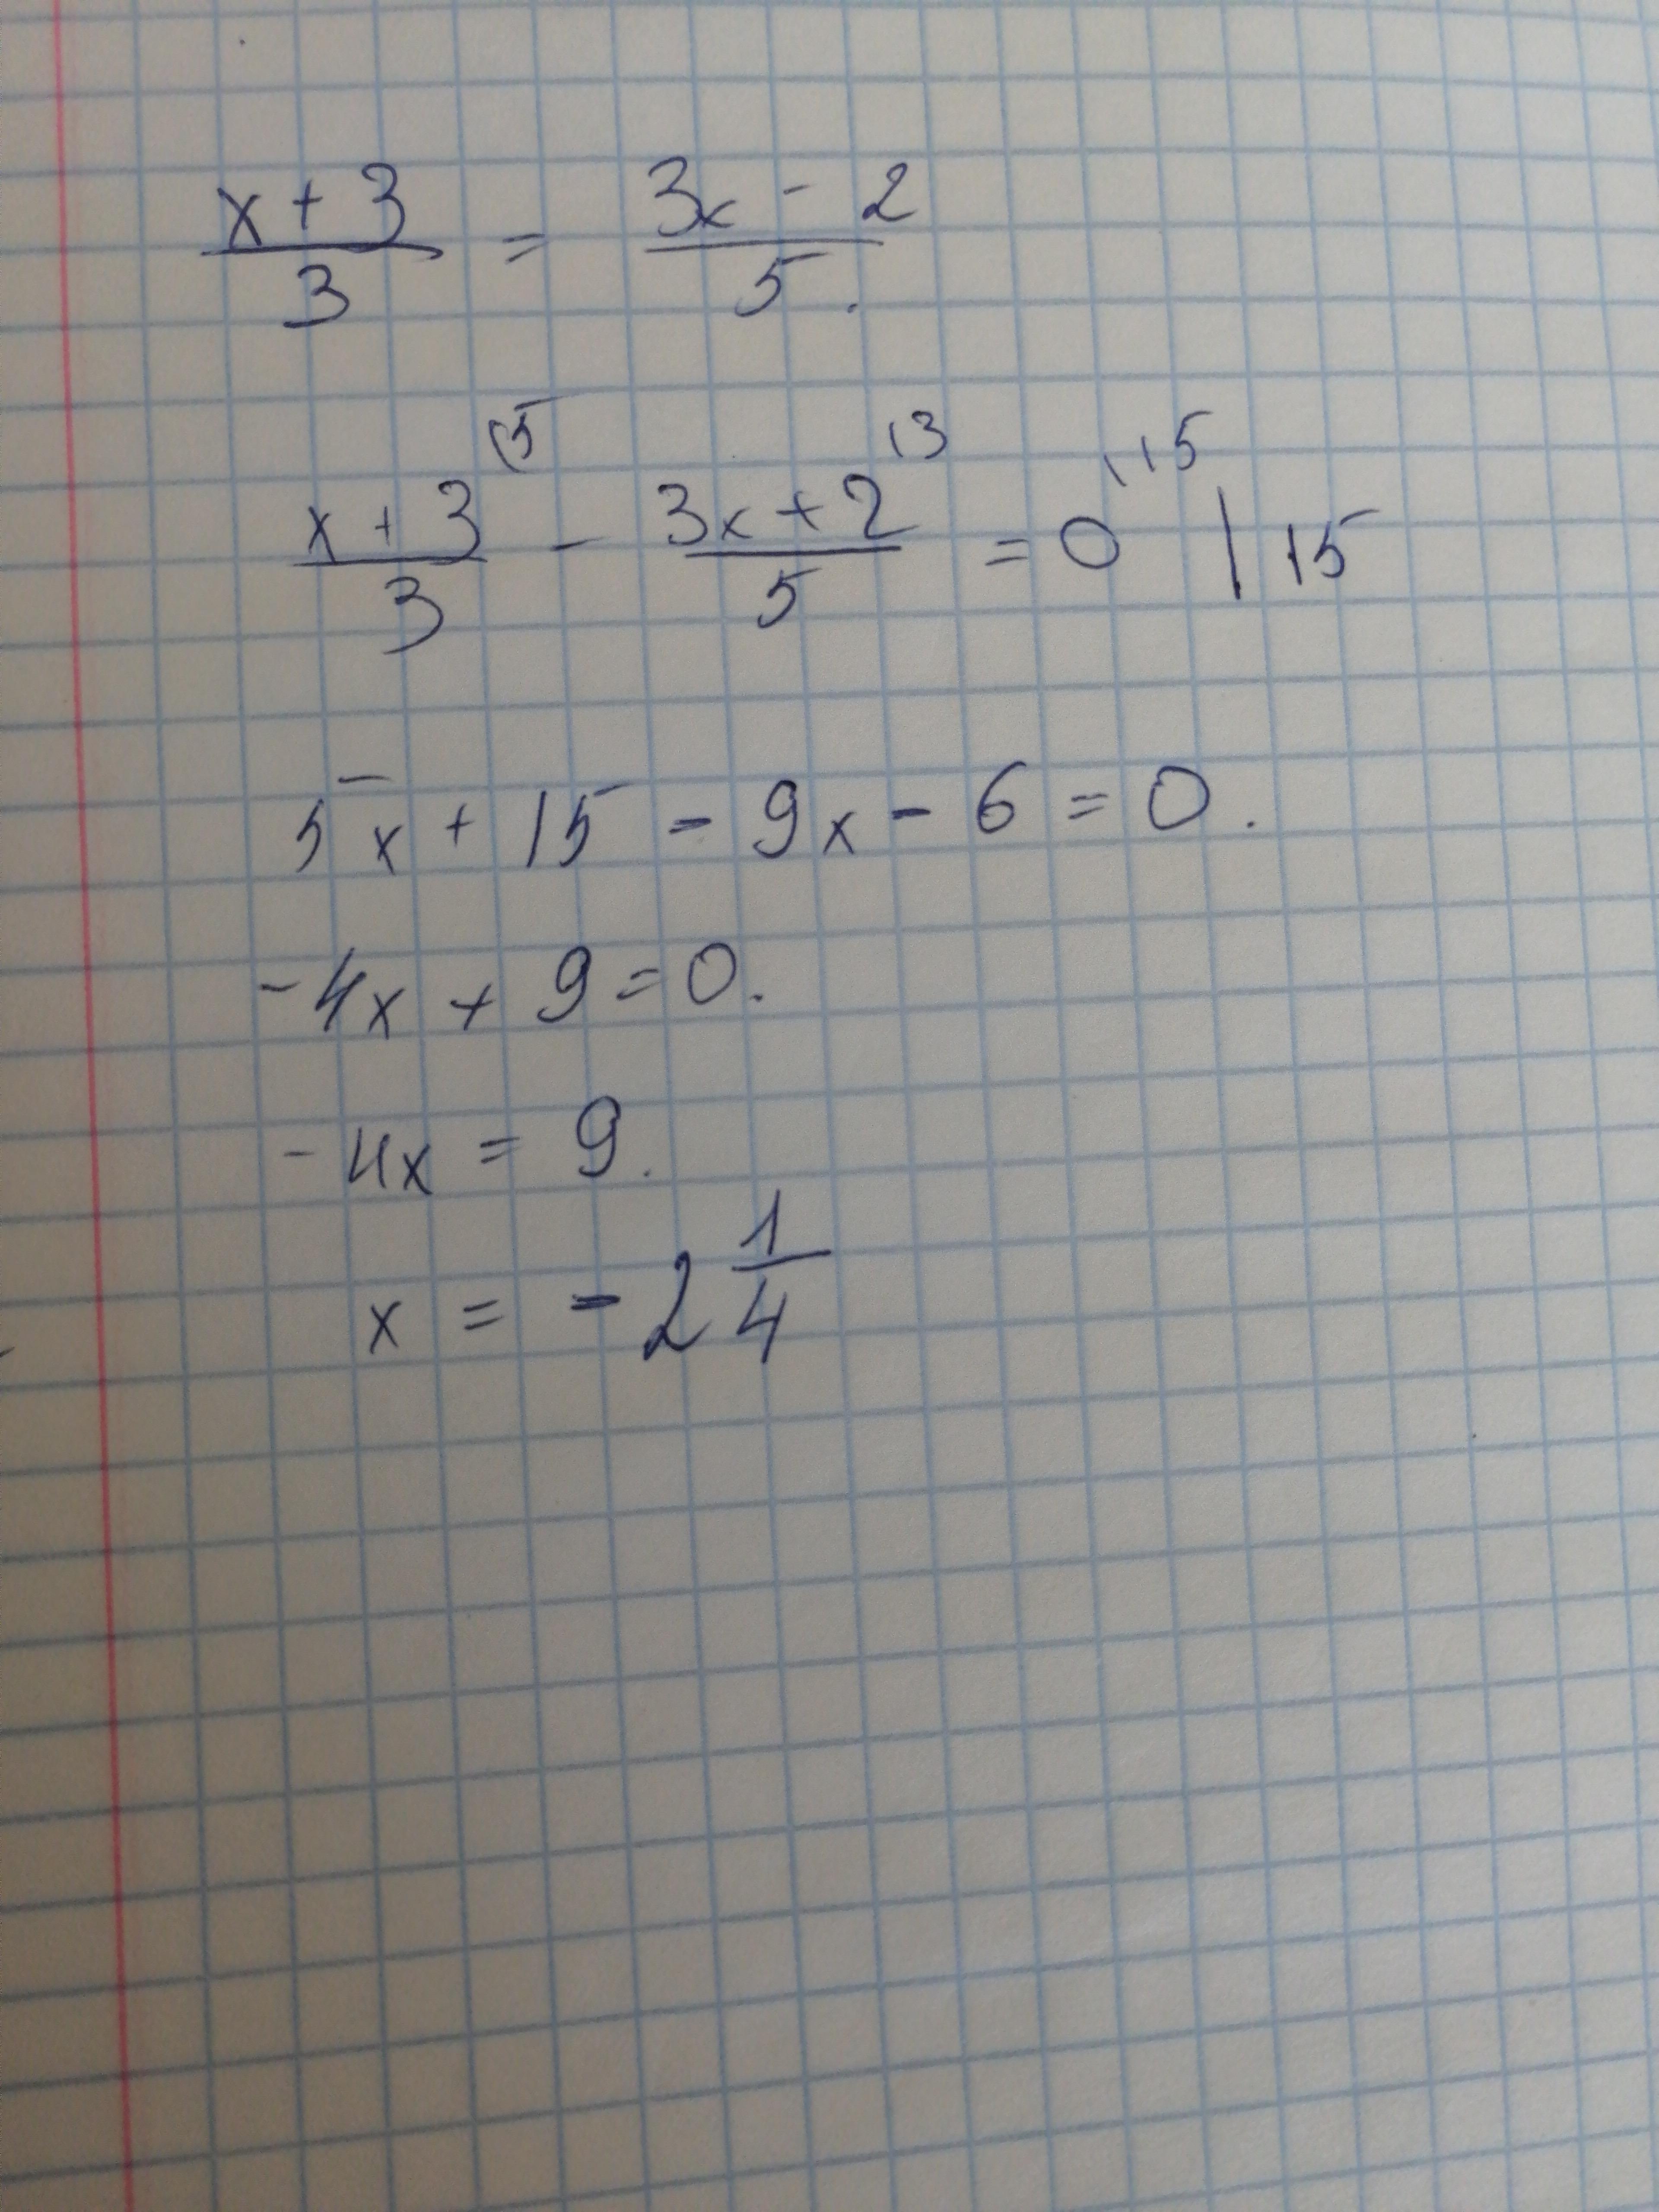 x + 3 / 3 = 3x - 2 / 5.
x + 3 / 3 (5 - 3x + 2 / 5 (3 = 0 (15 | 15
5x + 15 - 9x - 6 = 0.
-4x + 9 = 0.
-4x = 9.
x = -2 1/4